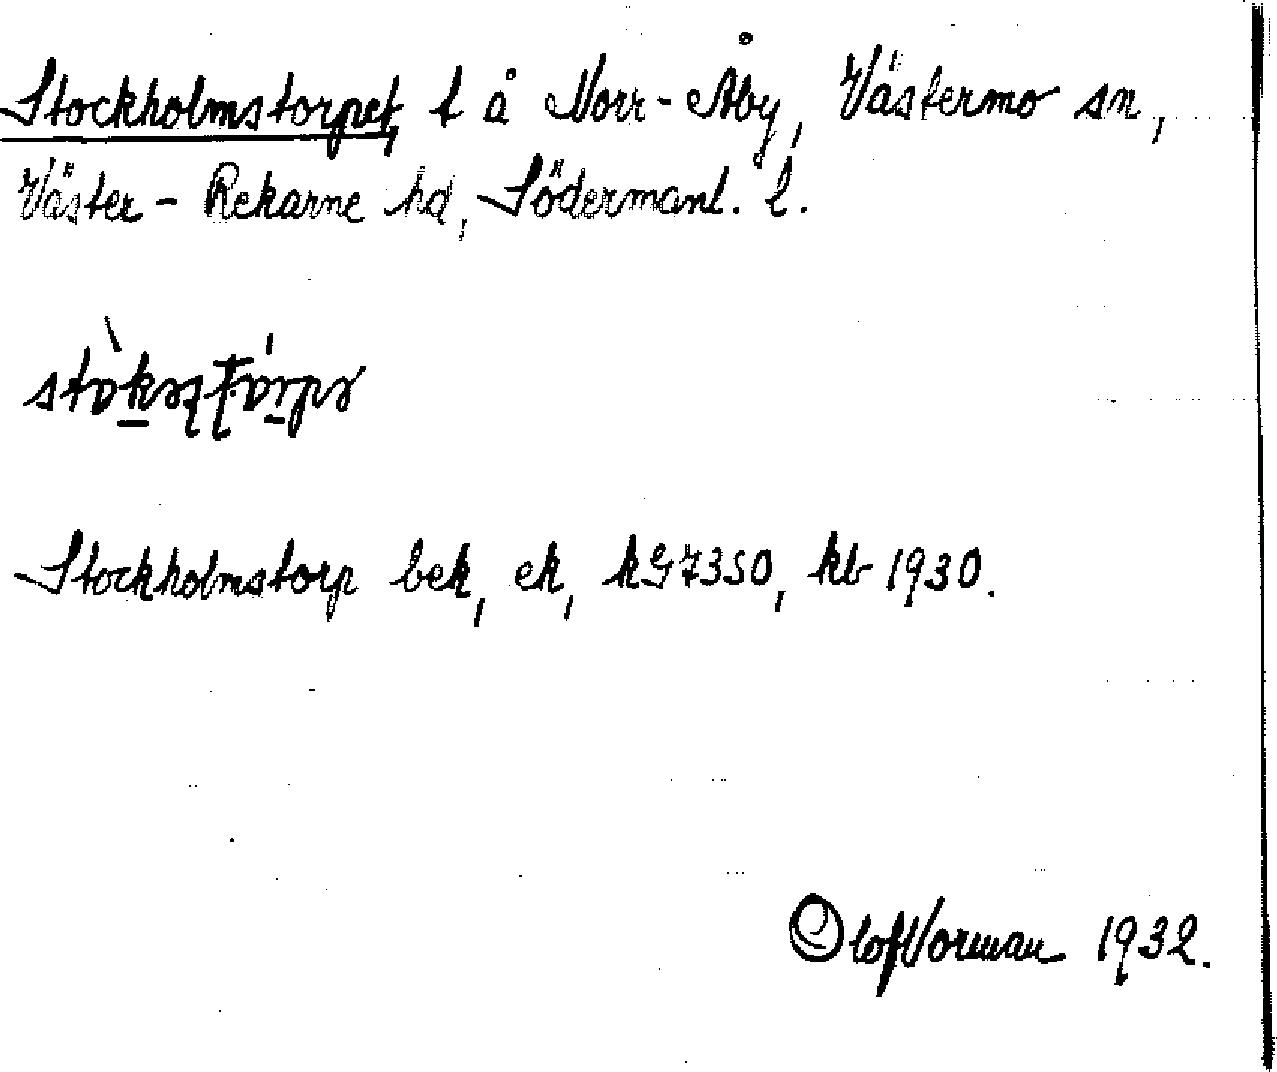 Stockholmstorpet t å Norr-Åby, Västermo sn,
Väster-Rekarne hd, Södermanl. l.
Stockholmstorp bek, ek, kG7350, kb 1930.
Olof Vorman 1932.